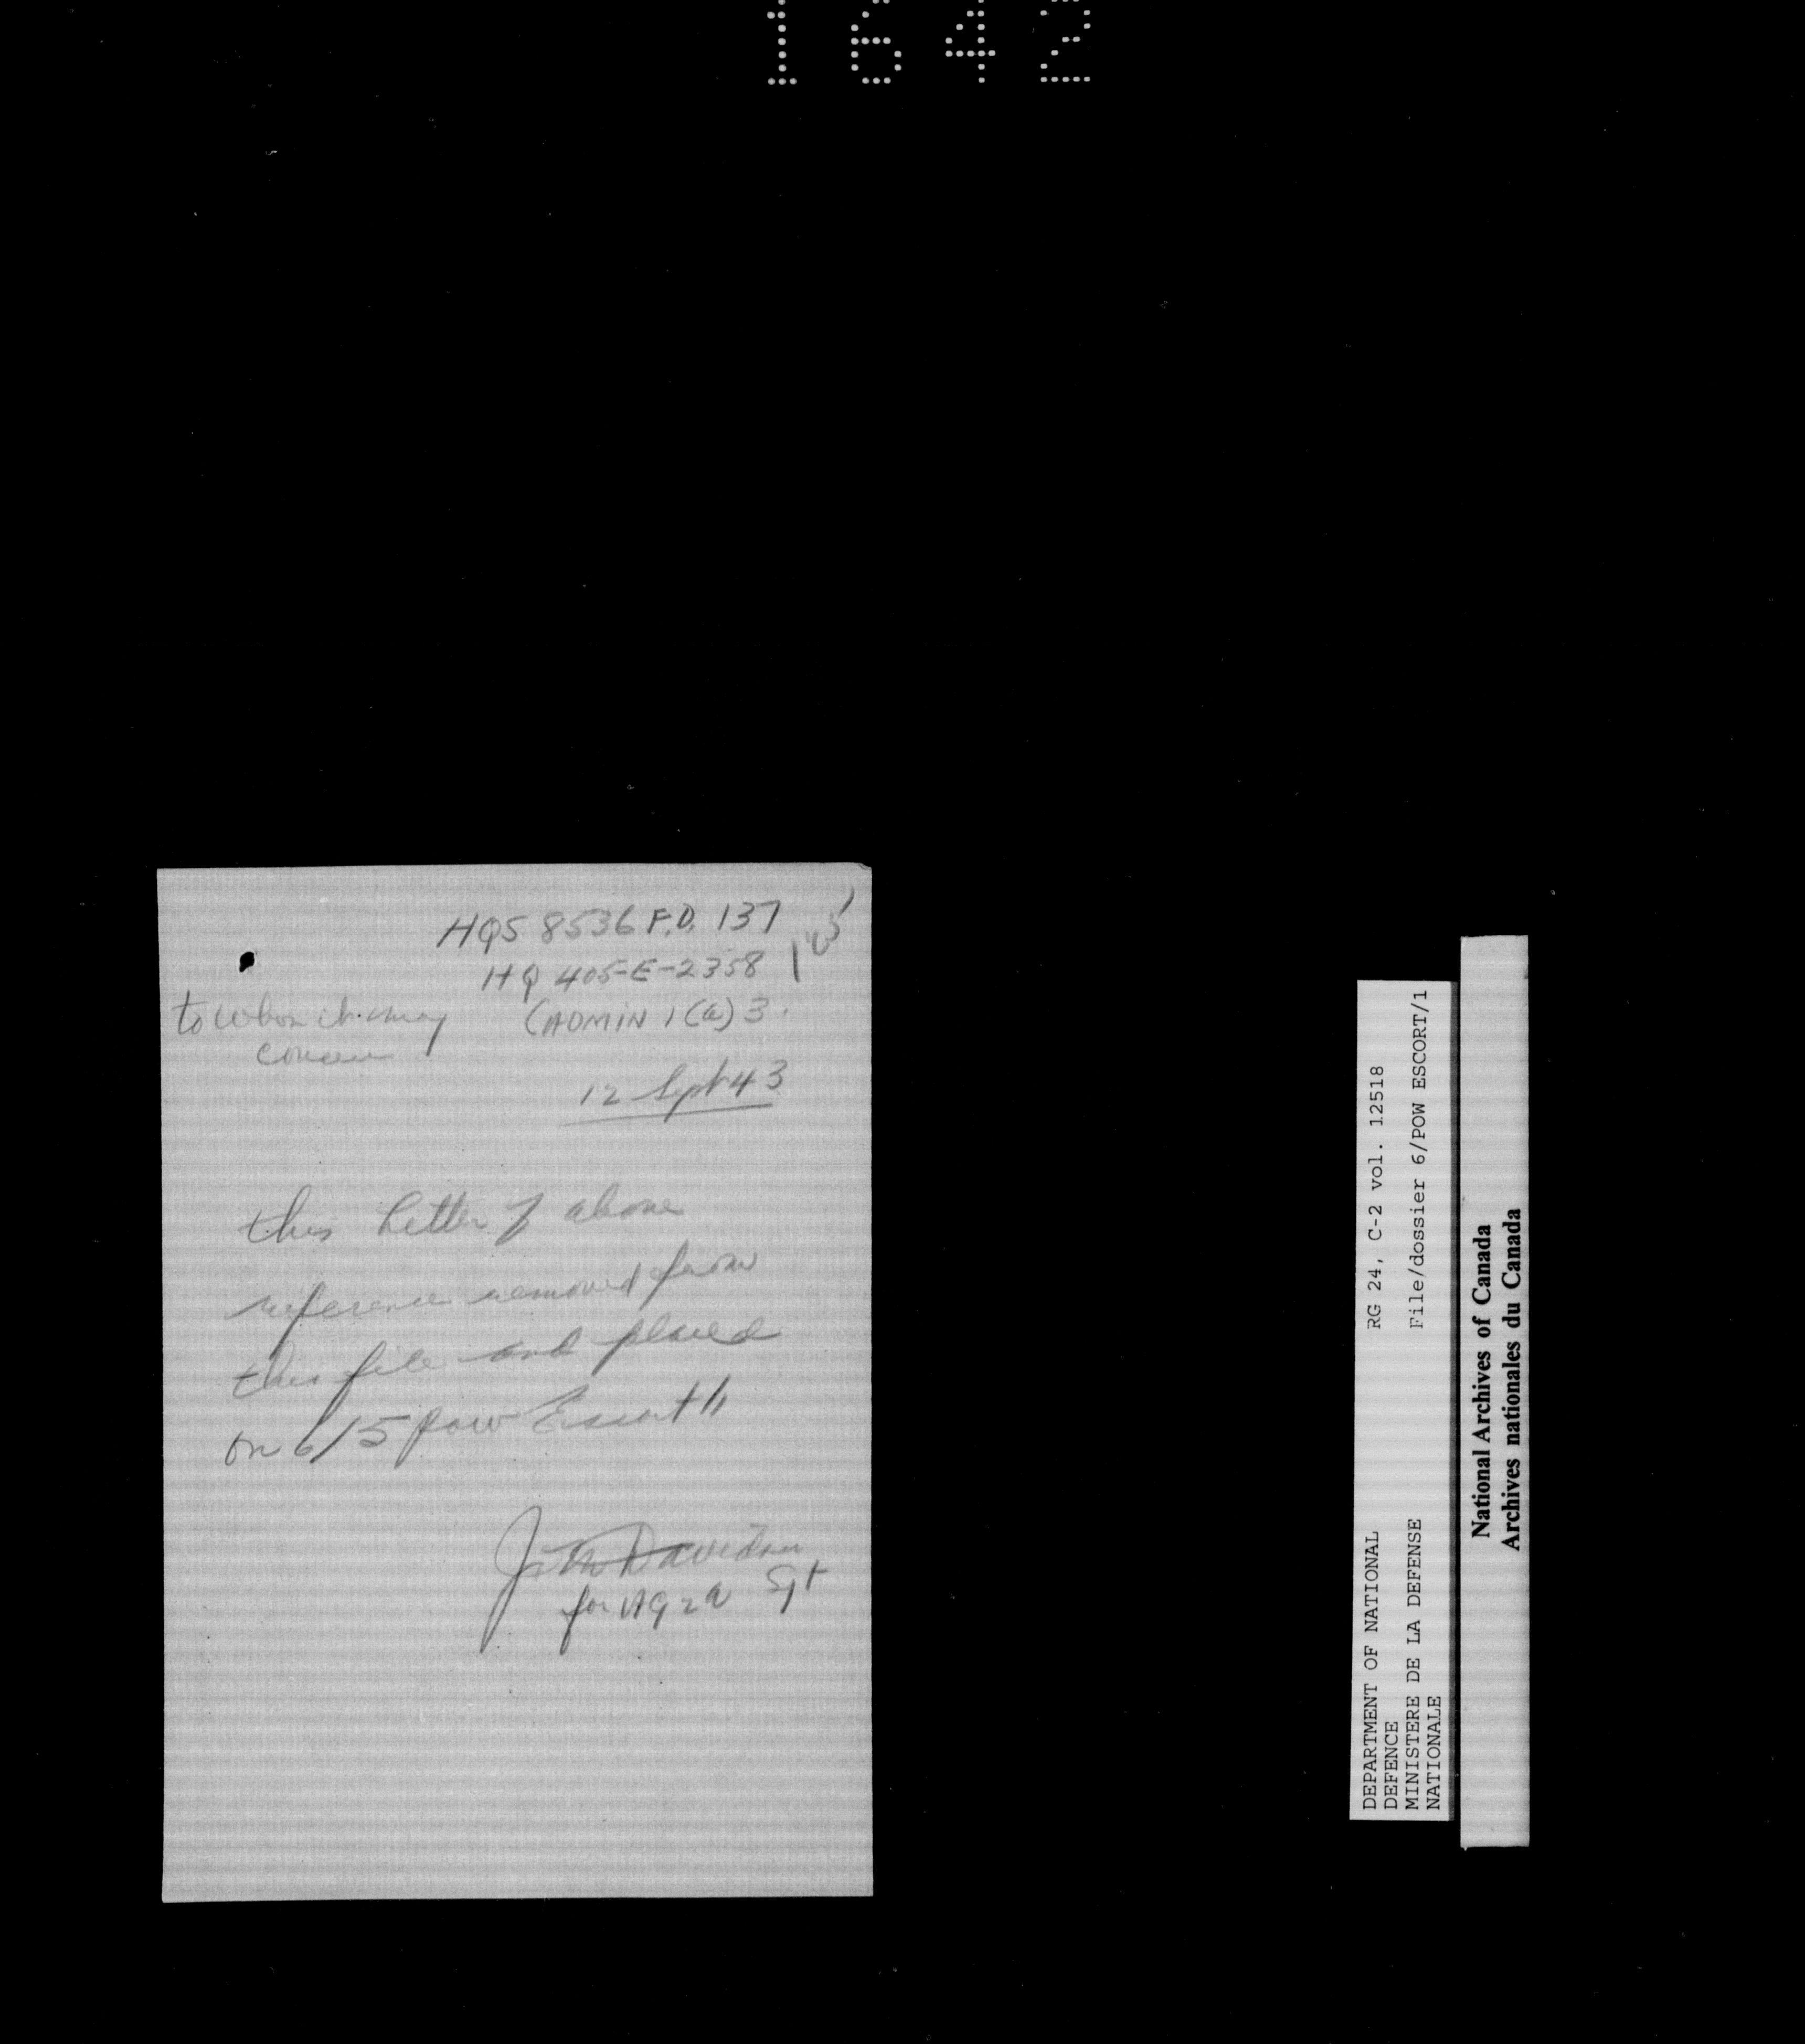 1642
HQS 8536 F.D. 137
HQ 405-E-2358
to whom it may
concern
(ADMIN 1(a) 3.
12 Sept 43
this letter of above
reference removed from
this file and placed
on 6/15 pow Escort/1
Davidson
for AG2a Sgt
DEPARTMENT OF NATIONAL RG 24, C-2 vol. 12518
DEFENCE
MINISTERE DE LA DEFENSE File/dossier 6/POW ESCORT/1
NATIONALE
National Archives of Canada
Archives nationales du Canada